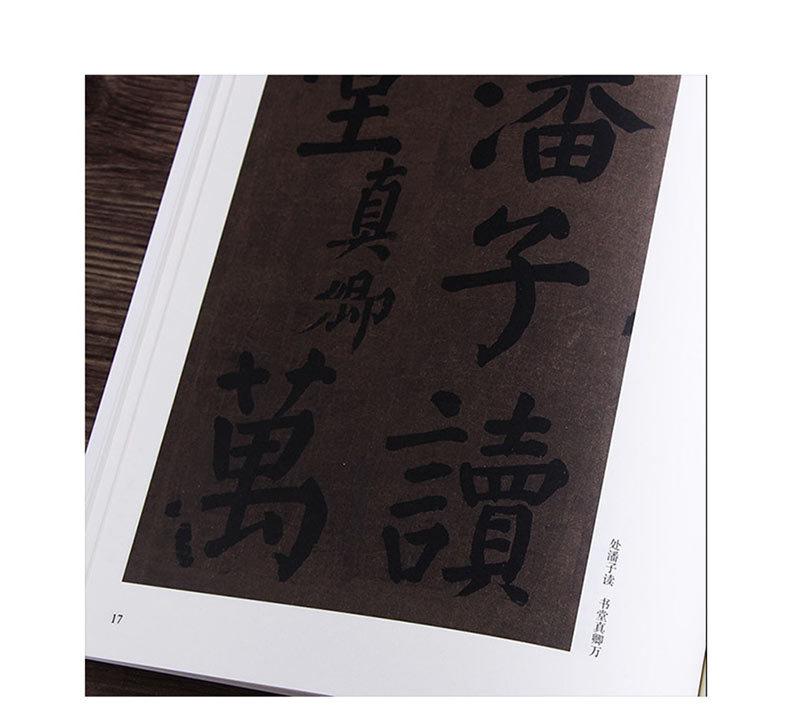 潘子讀
堂真卿萬
处潘子读 书堂真卿万
17